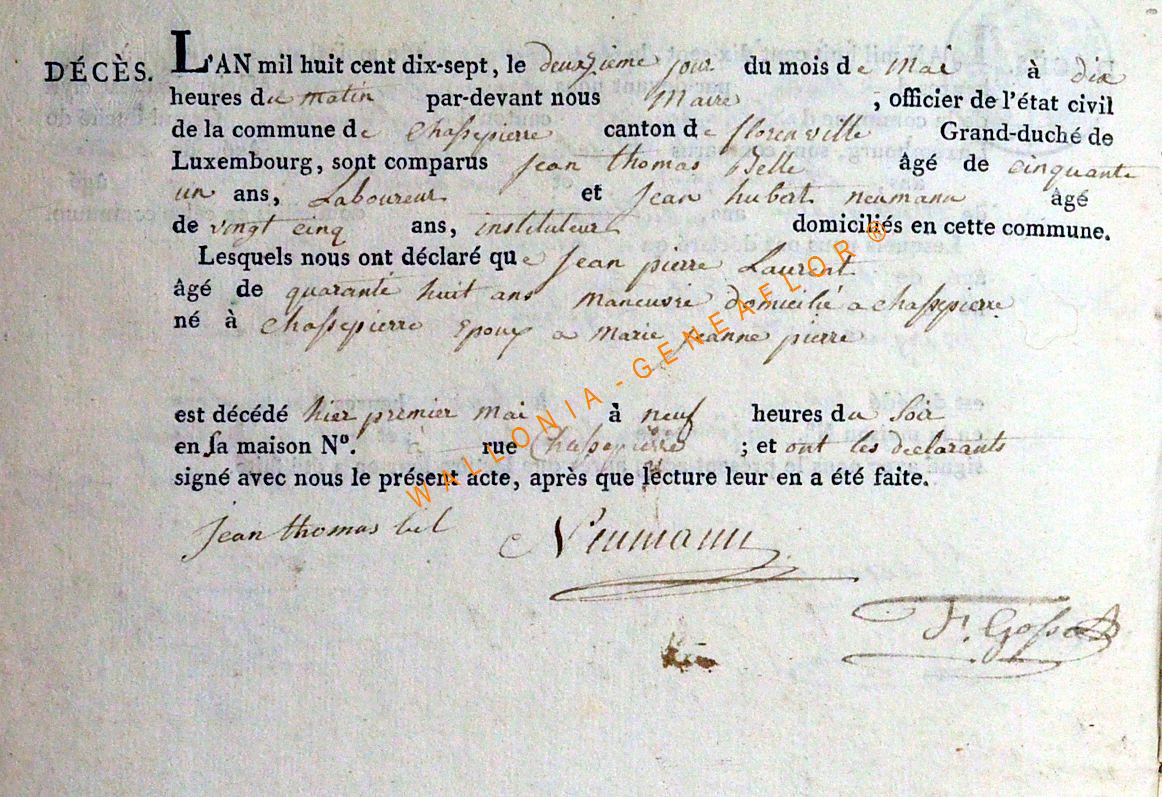 DÉCÈS. L'AN mil huit cent dix-sept, le deuxzieme jour du mois de Mai à dix
heures du matin par-devant nous Maire , officier de l'état civil
de la commune de Chassepierre canton de florenville Grand-duché de
Luxembourg, sont comparus Jean thomas Belle âgé de cinquante
un ans, Laboureur et Jean hubert neumann âgé
de vingt cinq ans, instituteur domiciliés en cette commune.
Lesquels nous ont déclaré que Jean pierre Laurent
âgé de quarante huit ans maneuvre domicilié a chassepierre
né à Chassepierre Epoux a Marie Jeanne pierre
est décédé hier premier mai à neuf heures du soir
en sa maison N°. rue Chassepierre ; et ont les declarants
signé avec nous le présent acte, après que lecture leur en a été faite.
Jean thomas bel Neumann
F. Gossa
WALLONIA-GENEAFLOR®